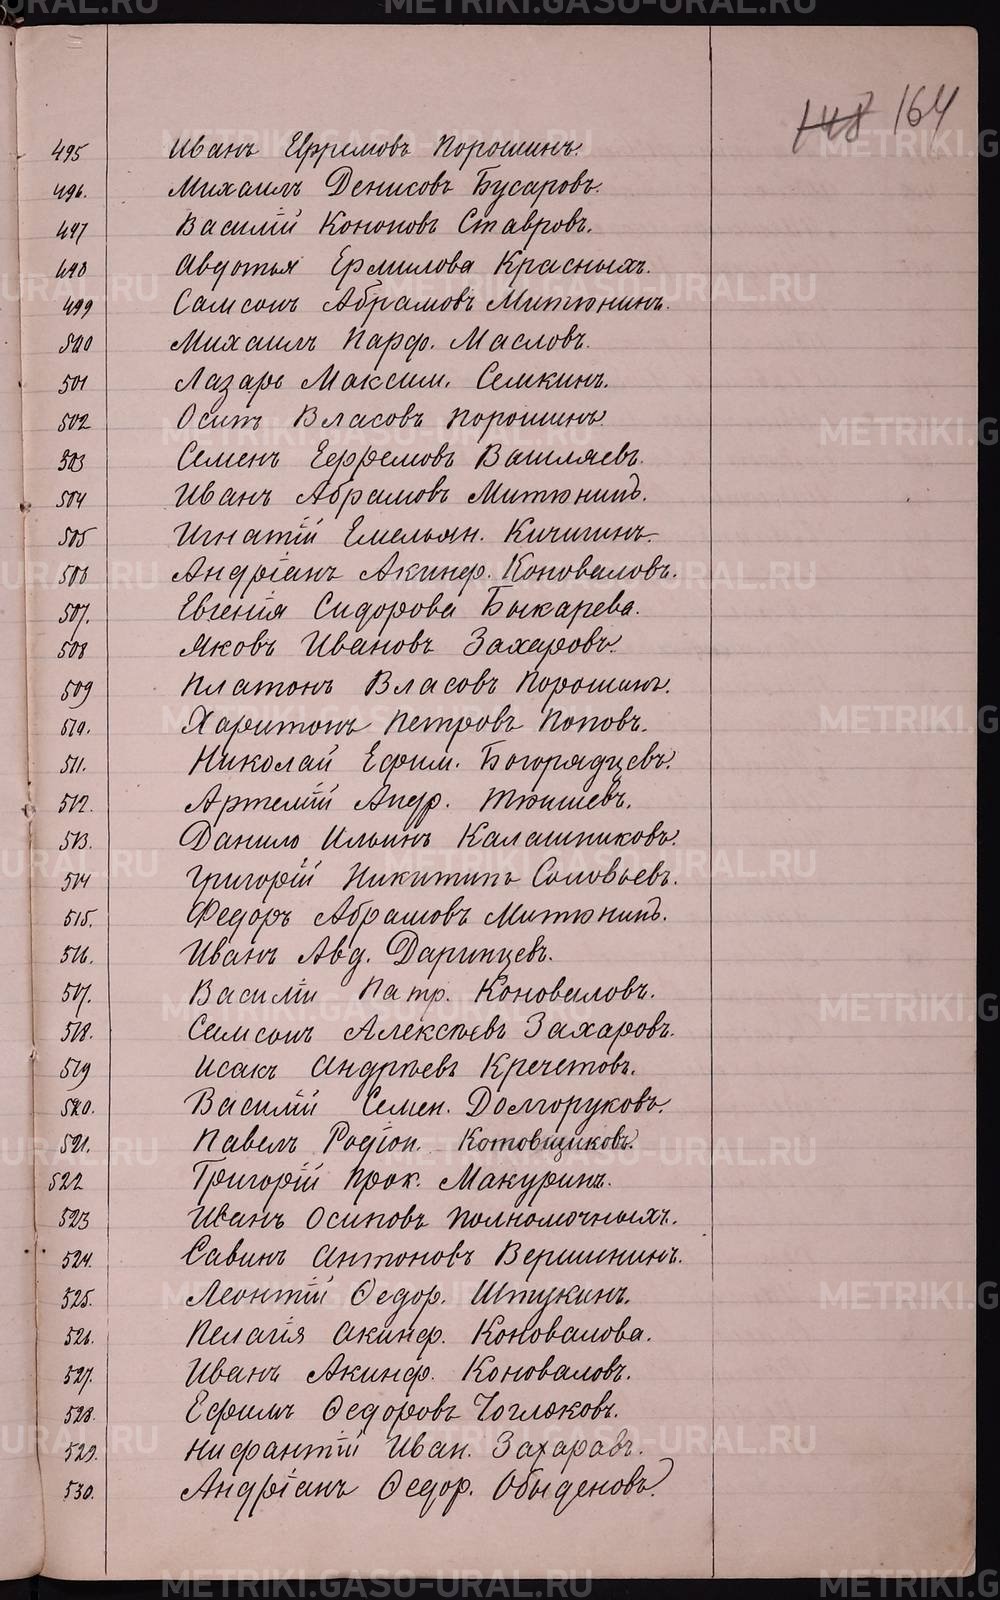 148 164
495 Иванъ Ефремовъ Порошинъ.
496. Михаилъ Денисовъ Бусаровъ.
497 Василій Кононовъ Ставровъ.
498 Авдотья Ермилова Красныхъ.
499 Самсонъ Абрамовъ Митюнинъ.
500 Михаилъ Парф. Масловъ.
501 Лазарь Максим. Семкинъ.
502 Осипъ Власовъ Порошинъ
503 Семенъ Ефремовъ Вашляевъ.
504 Иванъ Абрамовъ Митюнинъ.
505 Игнатій Емельян. Кичигинъ.
506 Андріанъ Акинф. Коноваловъ.
507. Евгенія Сидорова Быкарева.
508 Яковъ Ивановъ Захаровъ.
509 Платонъ Власовъ Порошинъ.
510. Харитонъ Петровъ Поповъ.
511. Николай Ефим. Богорядцевъ.
512. Артемій Андр. Тюишевъ.
513. Данило Ильинъ Калашниковъ.
514 Григорій Никитинъ Соловьевъ.
515. Федоръ Абрамовъ Митюнинъ.
516. Иванъ Авд. Даринцевъ.
517. Василій Патр. Коноваловъ.
518. Самсонъ Алексѣевъ Захаровъ.
519 Исакъ Андреевъ Кречетовъ.
520. Василій Семен. Долгоруковъ.
521. Павелъ Родіон. Котовщиковъ.
522 Григорій Прок. Макуринъ.
523 Иванъ Осиповъ Полномочныхъ.
524. Савинъ Антоновъ Вершининъ.
525. Леонтій Ѳедор. Штукинъ.
526. Пелагія Акинф. Коновалова.
527. Иванъ Акинф. Коноваловъ.
528. Ефимъ Ѳедоровъ Чоглоковъ.
529. Нифантій Иван. Захаровъ.
530. Андріанъ Ѳедор. Обыденовъ.